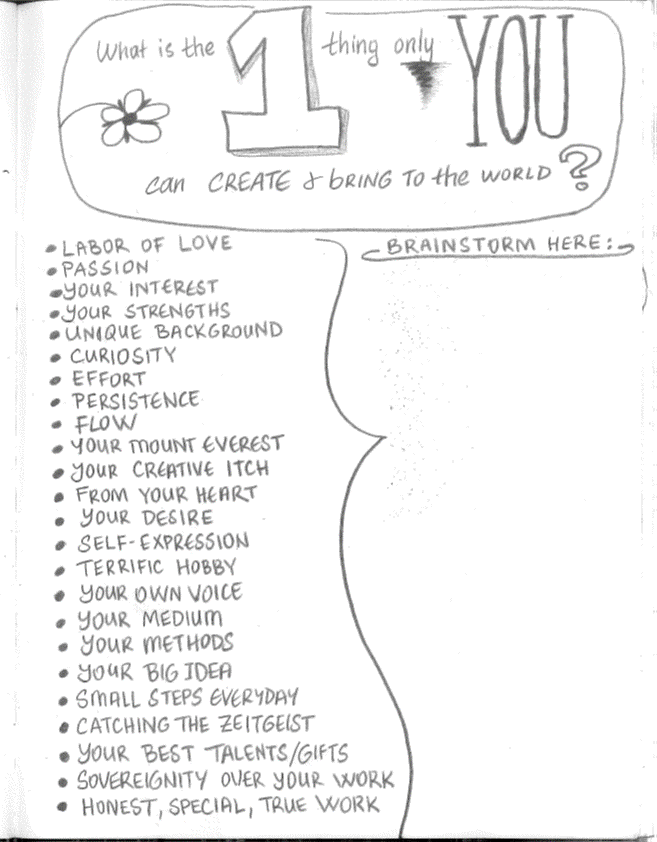 What is the 1 thing only YOU
can CREATE & bRING TO the WORLD ?
BRAINSTORM HERE:
• LABOR OF LOVE
• PASSION
• YOUR INTEREST
• YOUR STRENGTHS
• UNIQUE BACKGROUND
• CURIOSITY
• EFFORT
• PERSISTENCE
• FLOW
• YOUR MOUNT EVEREST
• YOUR CREATIVE ITCH
• FROM YOUR HEART
• YOUR DESIRE
• SELF-EXPRESSION
• TERRIFIC HOBBY
• YOUR OWN VOICE
• YOUR MEDIUM
• YOUR METHODS
• YOUR BIG IDEA
• SMALL STEPS EVERYDAY
• CATCHING THE ZEITGEIST
• YOUR BEST TALENTS/GIFTS
• SOVEREIGNITY OVER YOUR WORK
• HONEST, SPECIAL, TRUE WORK